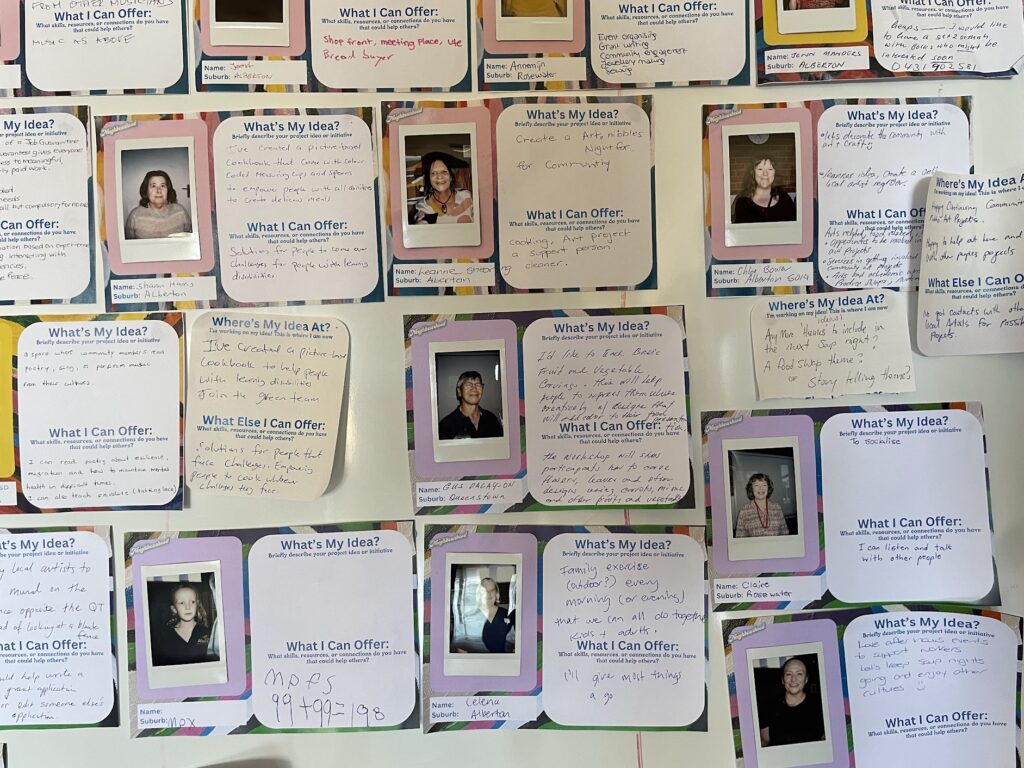 FROM OTHER MUSICIANS
MUSIC AS ABOVE
What I Can Offer:
What skills, resources, or connections do you have
that could help others?
Shop front, meeting place, Ute
Bread buyer
Name:
Suburb: ALBERTON
What I Can Offer:
What skills, resources, or connections do you have
that could help others?
Event organising
Grant writing
Community engagement
Jewellery making
Sewing
Name: Annemijn
Suburb: Rosewater
I would like
to have a
with
interested soon
Name: JOHN
Suburb: ALBERTON
My Idea?
your project idea or initiative
of a Job Guarantee
guarantee gives everyone
to meaningful,
paid work.
needs
all but compulsory for none
I Can Offer:
resources, or connections do you have
that could help others?
based on experience
interacting with
Neighbourhood
What's My Idea?
Briefly describe your project idea or initiative
I've created a picture-based
Cookbook that come with colour
Coded Measuring cups and spoons
to empower people with all abilities
to create delicious meals
What I Can Offer:
What skills, resources, or connections do you have
that could help others?
Solutions for people to come over
challenges for people with learning
disabilities
Name: Sharon
Suburb: Alberton
Neighbourhood
What's My Idea?
Briefly describe your project idea or initiative
Create a Art, nibbles
Night for.
for Community
What I Can Offer:
What skills, resources, or connections do you have
that could help others?
cooking, Art project
a support person.
cleaner.
Name: Leanne
Suburb: Alberton
What's My Idea?
Briefly describe your project idea or initiative
Let's decorate the community with
art + Crafty
ideas, Create a
local artist register.
What I Can Offer:
What skills, resources, or connections
that could help others?
Arts related,
Opportunities to be involved in
art projects
in getting involved in
Community art projects
Name: Chloe
Suburb: Alberton 5014
Where's My Idea A
I'm working on my idea! This is where I am
Happy Continuing Communi
Art Projects.
Happy to help at here and
other peoples projects
What Else I Can O
What skills, resources, or connections
that could help others?
I've got contacts with othe
local Artists for possi
Projects.
What's My Idea?
Briefly describe your project idea or initiative
a space what community members read
poetry, sing, or perform music
from their cultures.
What I Can Offer:
What skills, resources, or connections do you have
that could help others?
I can read poetry about resilience,
migration and how to maintain mental
health in difficult times.
I can also teach
Where's My Idea At?
I'm working on my idea! This is where I am now
I've created a picture-based
Cookbook to help people
with learning disabilities
Join the green team
What Else I Can Offer:
What skills, resources, or connections do you have
that could help others?
Solutions for people that
face challenges. Empowing
people to Cook whatever
challenges they face.
Neighbourhood
What's My Idea?
Briefly describe your project idea or initiative
I'd like to teach Basic
Fruit and Vegetable
Carvings. This will help
people to express themselves
creatively w/ designs that
will add color to their food presenta-
tion.
What I Can Offer:
What skills, resources, or connections do you have
that could help others?
The workshop will show
participants how to carve
flowers, leaves and other
designs using carrots,
and other fruits and vegetables
Name: GUS
Suburb: Queenstown
Where's My Idea At?
I'm working on my idea! This is where I am now
ideas!
Any More themes to include in
the next Soup night?
A food swap theme?
or Story telling theme?
Neighbourhood
What's My Idea?
Briefly describe your project idea or initiative
To socialise
What I Can Offer:
What skills, resources, or connections do you have
that could help others?
I can listen and talk
with other people
Name: Claire
Suburb: Rosewater
at's My Idea?
your project idea or initiative
local artists to
mural on the
opposite the QT
of looking at a blank
fence
I Can Offer:
resources, or connections do you have
that could help others?
help write a
grant application
or edit someone else's
application.
Neighbourhood
What's My Idea?
Briefly describe your project idea or initiative
What I Can Offer:
What skills, resources, or connections do you have
that could help others?
99+99=198
Name:
Suburb: MPX
Neighbourhood
What's My Idea?
Briefly describe your project idea or initiative
Family exercise
(outdoor?) every
morning (or evening)
that we can all do together
kids + adults.
What I Can Offer:
What skills, resources, or connections do you have
that could help others?
I'll give most things
a go
Name: Celena
Suburb: Alberton
Neighbourhood
What's My Idea?
Briefly describe your project idea or initiative
Love after hours events
to support workers
Let's keep soup nights
going and enjoy other
cultures
What I Can Offer:
What skills, resources, or connections do you have
that could help others?